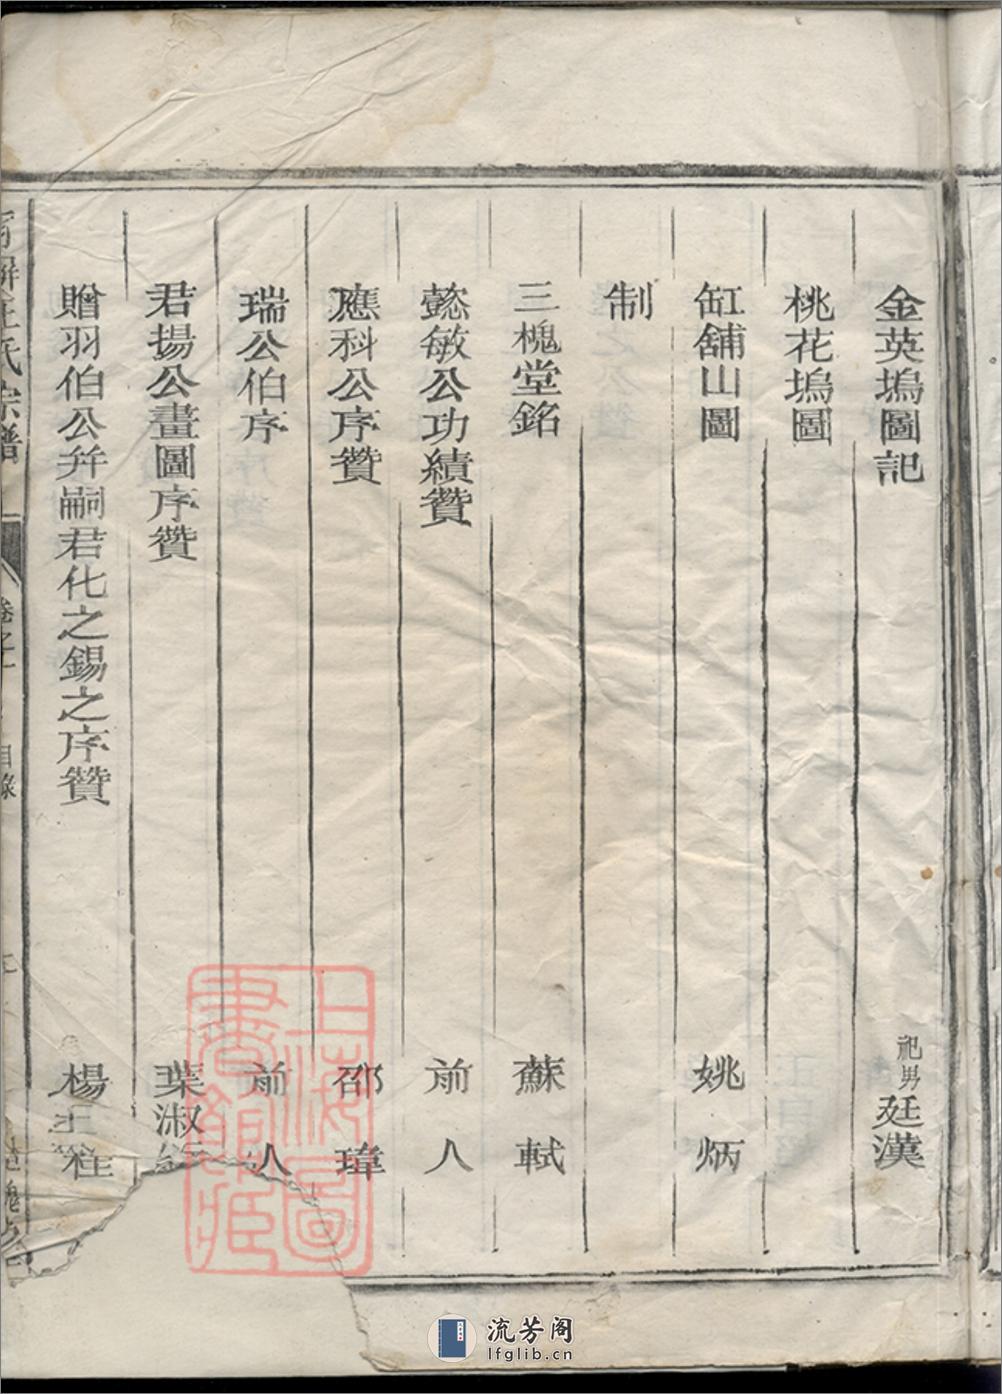 金英塢圖記 祀男廷漢
桃花塢圖
缸舖山圖 姚炳
制
三槐堂銘 蘇軾
懿敏公功績贊 前人
應科公序贊 邵瑋
瑞公伯序 前人
君揚公畫圖序贊 葉淑
贈羽伯公幷嗣君化之錫之序贊 楊
氏宗譜 卷之一 目錄
上海圖書館藏
流芳阁
lfglib.cn